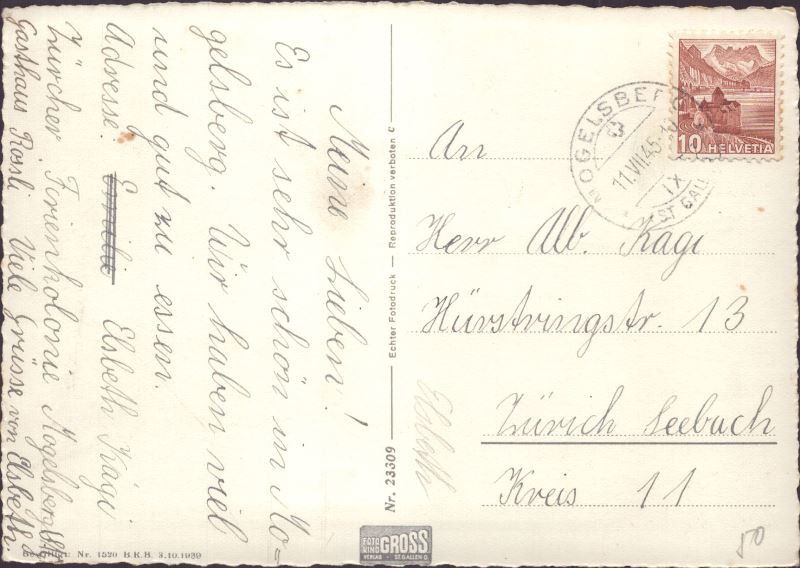 Meine Lieben!
Es ist sehr schön in Mo-
gelsberg. Wir haben viel
und gut zu essen.
Adresse: Emilie Elsbeth Kägi
Zürcher Ferienkolonie Mogelsberg
Gasthaus Rössli Viele Grüsse von Elsbeth
Bewilligt Nr. 1520 B.R.B. 3.10.1939
Echter Fotodruck — Reproduktion verboten C
Nr. 23309
FOTO GROSS
VERLAG ST.GALLEN O.
MOGELSBERG
11.VII.45
IX
(ST. GALL
10 HELVETIA
An
Herr Alb. Kägi
Hürstringstr. 13
Zürich Seebach
Kreis 11
Elsbeth
50